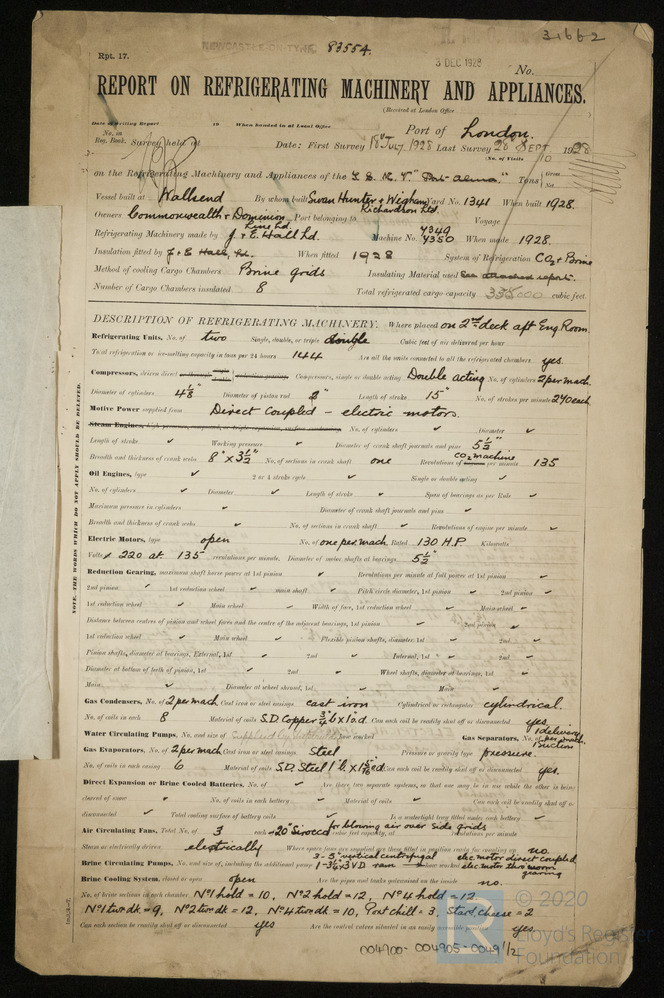 31662
NEWCASTLE-ON-TYNE. 83554.
Rpt. 17.
3 DEC 1928
No.
REPORT ON REFRIGERATING MACHINERY AND APPLIANCES.
(Received at London Office
Date of writing Report 19 When handed in at Local Office Port of London.
No. in Reg. Book. Survey held at Date: First Survey 18 July 1928 Last Survey 28 SEPT 1928
(No. of Visits 10
on the Refrigerating Machinery and Appliances of the "Port Alma" Tons Gross Net
Vessel built at Wallsend By whom built Swan Hunter & Wigham Richardson Ltd. Yard No. 1341 When built 1928.
Owners Commonwealth & Dominion Line Ld. Port belonging to Voyage
Refrigerating Machinery made by J & E. Hall Ld. Machine No. 4349 4350 When made 1928.
Insulation fitted by J & E Hall, Ld. When fitted 1928 System of Refrigeration CO2 & Brine
Method of cooling Cargo Chambers Brine grids Insulating Material used See attached report.
Number of Cargo Chambers insulated 8 Total refrigerated cargo capacity 335,000 cubic feet.
DESCRIPTION OF REFRIGERATING MACHINERY. Where placed on 2nd deck aft Eng Room.
Refrigerating Units, No. of two Single, double, or triple double Cubic feet of air delivered per hour
Total refrigeration or ice-melting capacity in tons per 24 hours 144 Are all the units connected to all the refrigerated chambers yes.
Compressors, driven direct Compressors, single or double acting Double acting No. of cylinders 2 per mach.
Diameter of cylinders 4 1/8" Diameter of piston rod 2" Length of stroke 15" No. of strokes per minute 270 each
Motive Power supplied from Direct Coupled - electric motors.
Steam Engines, No. of cylinders ✓ Diameter ✓
Length of stroke ✓ Working pressure ✓ Diameter of crank shaft journals and pins 5 1/2"
Breadth and thickness of crank webs 8" x 3 1/2" No. of sections in crank shaft one Revolutions of CO2 machine per minute 135
Oil Engines, type ✓ 2 or 4 stroke cycle ✓ Single or double acting ✓
No. of cylinders ✓ Diameter ✓ Length of stroke ✓ Span of bearings as per Rule ✓
Maximum pressure in cylinders ✓ Diameter of crank shaft journals and pins ✓
Breadth and thickness of crank webs ✓ No. of sections in crank shaft ✓ Revolutions of engine per minute ✓
Electric Motors, type open No. of one per mach Rated 130 H.P Kilowatts
Volts 220 at 135 revolutions per minute, Diameter of motor shafts at bearings 5 1/2"
Reduction Gearing, maximum shaft horse power at 1st pinion ✓ Revolutions per minute at full power at 1st pinion ✓
2nd pinion ✓ 1st reduction wheel ✓ main shaft ✓ Pitch circle diameter, 1st pinion ✓ 2nd pinion ✓
1st reduction wheel ✓ Main wheel ✓ Width of face, 1st reduction wheel ✓ Main wheel ✓
Distance between centres of pinion and wheel faces and the centre of the adjacent bearings, 1st pinion ✓ 2nd pinion ✓
1st reduction wheel ✓ Main wheel ✓ Flexible pinion shafts, diameter 1st ✓ 2nd ✓
Pinion shafts, diameter at bearings, External, 1st ✓ 2nd ✓ Internal, 1st ✓ 2nd ✓
Diameter at bottom of teeth of pinion, 1st ✓ 2nd ✓ Wheel shafts, diameter at bearings, 1st ✓
Main ✓ Diameter at wheel shroud, 1st ✓ Main ✓
Gas Condensers, No. of 2 per mach Cast iron or steel casings cast iron Cylindrical or rectangular cylindrical.
No. of coils in each 8 Material of coils S.D. Copper Can each coil be readily shut off or disconnected yes
Water Circulating Pumps, No. and size of how worked Gas Separators, No. of 1 delivery 1 suction per mach.
Gas Evaporators, No. of 2 per mach Cast iron or steel casings Steel Pressure or gravity type pressure.
No. of coils in each casing 6 Material of coils S.D. Steel Can each coil be readily shut off or disconnected yes.
Direct Expansion or Brine Cooled Batteries, No. of ✓ Are there two separate systems, so that one may be in use while the other is being
cleared of snow ✓ No. of coils in each battery ✓ Material of coils ✓ Can each coil be readily shut off or
disconnected ✓ Total cooling surface of battery coils ✓ Is a watertight tray fitted under each battery ✓
Air Circulating Fans, Total No. of 3 each 20" Sirocco for blowing air over side grids revolutions per minute
Steam or electrically driven electrically Where spare fans are supplied are these fitted in position ready for coupling up no.
Brine Circulating Pumps, No. and size of, including the additional pump 3 - 5" vertical centrifugal elec motor direct coupled
ram worked elec. motor thro worm gearing
Brine Cooling System, closed or open open Are the pipes and tanks galvanised on the inside no.
No. of brine sections in each chamber No 1 hold = 10, No 2 hold = 12, No 4 hold = 12
No 1 tw dk = 9, No 2 tw dk = 12, No 4 tw dk = 10, Port chill = 3, Starb. cheese = 2
Can each section be readily shut off or disconnected yes Are the control valves situated in an easily accessible position yes
NOTE.—THE WORDS WHICH DO NOT APPLY SHOULD BE DELETED.
004900-004905-0049 1/2
© 2020
Lloyd's Register
Foundation